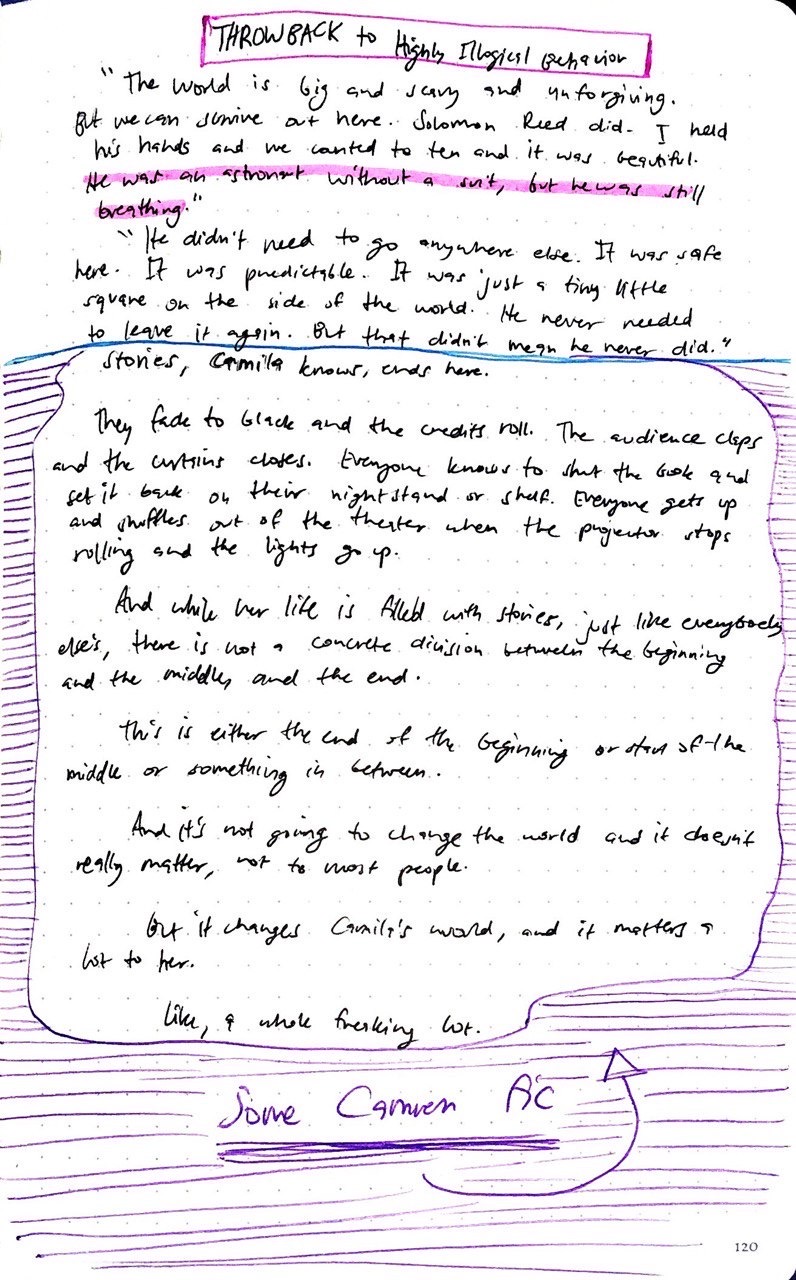 THROWBACK to Highly Illogical Behavior
"The world is big and scary and unforgiving.
But we can survive out here. Solomon Reed did. I held
his hands and we counted to ten and it was beautiful.
He was an astronaut without a suit, but he was still
breathing."
"He didn't need to go anywhere else. It was safe
here. It was predictable. It was just a tiny little
square on the side of the world. He never needed
to leave it again. But that didn't mean he never did."
stories, Camila knows, ends here.
They fade to black and the credits roll. The audience claps
and the curtains closes. Everyone knows to shut the book and
set it back on their nightstand or shelf. Everyone gets up
and shuffles out of the theater when the projector stops
rolling and the lights go up.
And while her life is filled with stories, just like everybody
else's, there is not a concrete division between the beginning
and the middle, and the end.
This is either the end of the beginning or start of the
middle or something in between.
And it's not going to change the world and it doesn't
really matter, not to most people.
But it changes Camila's world, and it matters a
lot to her.
Like, a whole freaking lot.
Some Camren
120